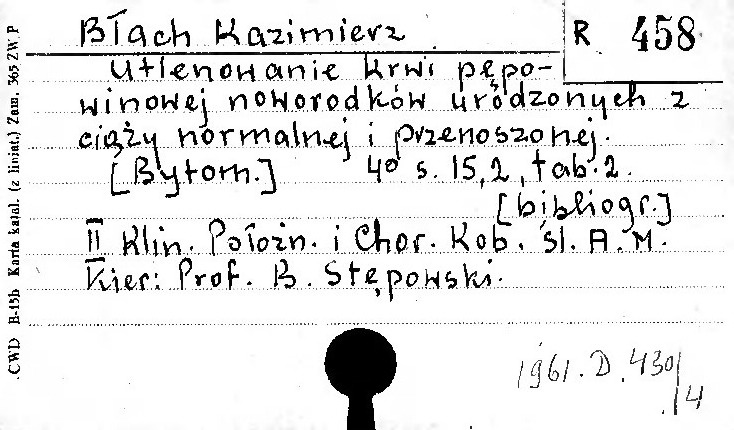 Błach Kazimierz
R 458
Utlenowanie krwi pępo-
winowej noworodków urodzonych z
ciąży normalnej i przenoszonej.
[Bytom.] 4° s. 15,2, tab. 2.
[bibliogr.]
II Klin. Położn. i Chor. Kob. Śl. A. M.
Kier: Prof. B. Stępowski.
1961. D. 430/
/4
CWD B-15b Karta katal. (z liniat.) Zam. 365 ZW P